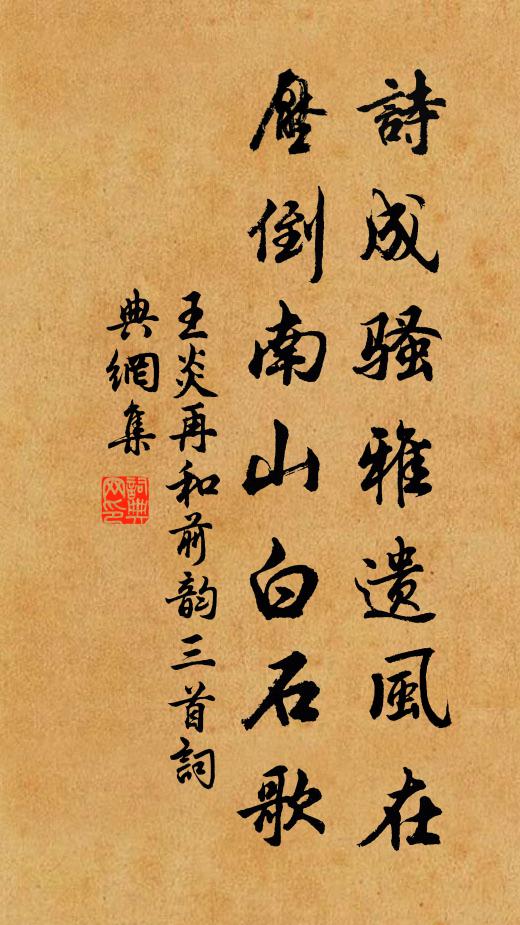 詩成騷雅遺風在
壓倒南山白石歌
王炎再和前韵三首詞
典網集
詞典
网印